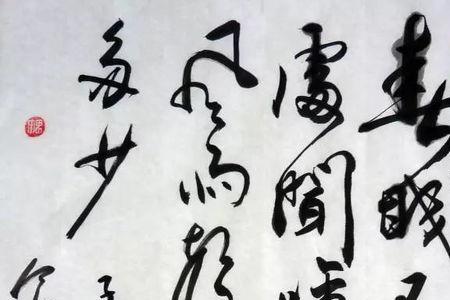 春眠不
處聞啼
风雨聲
多少